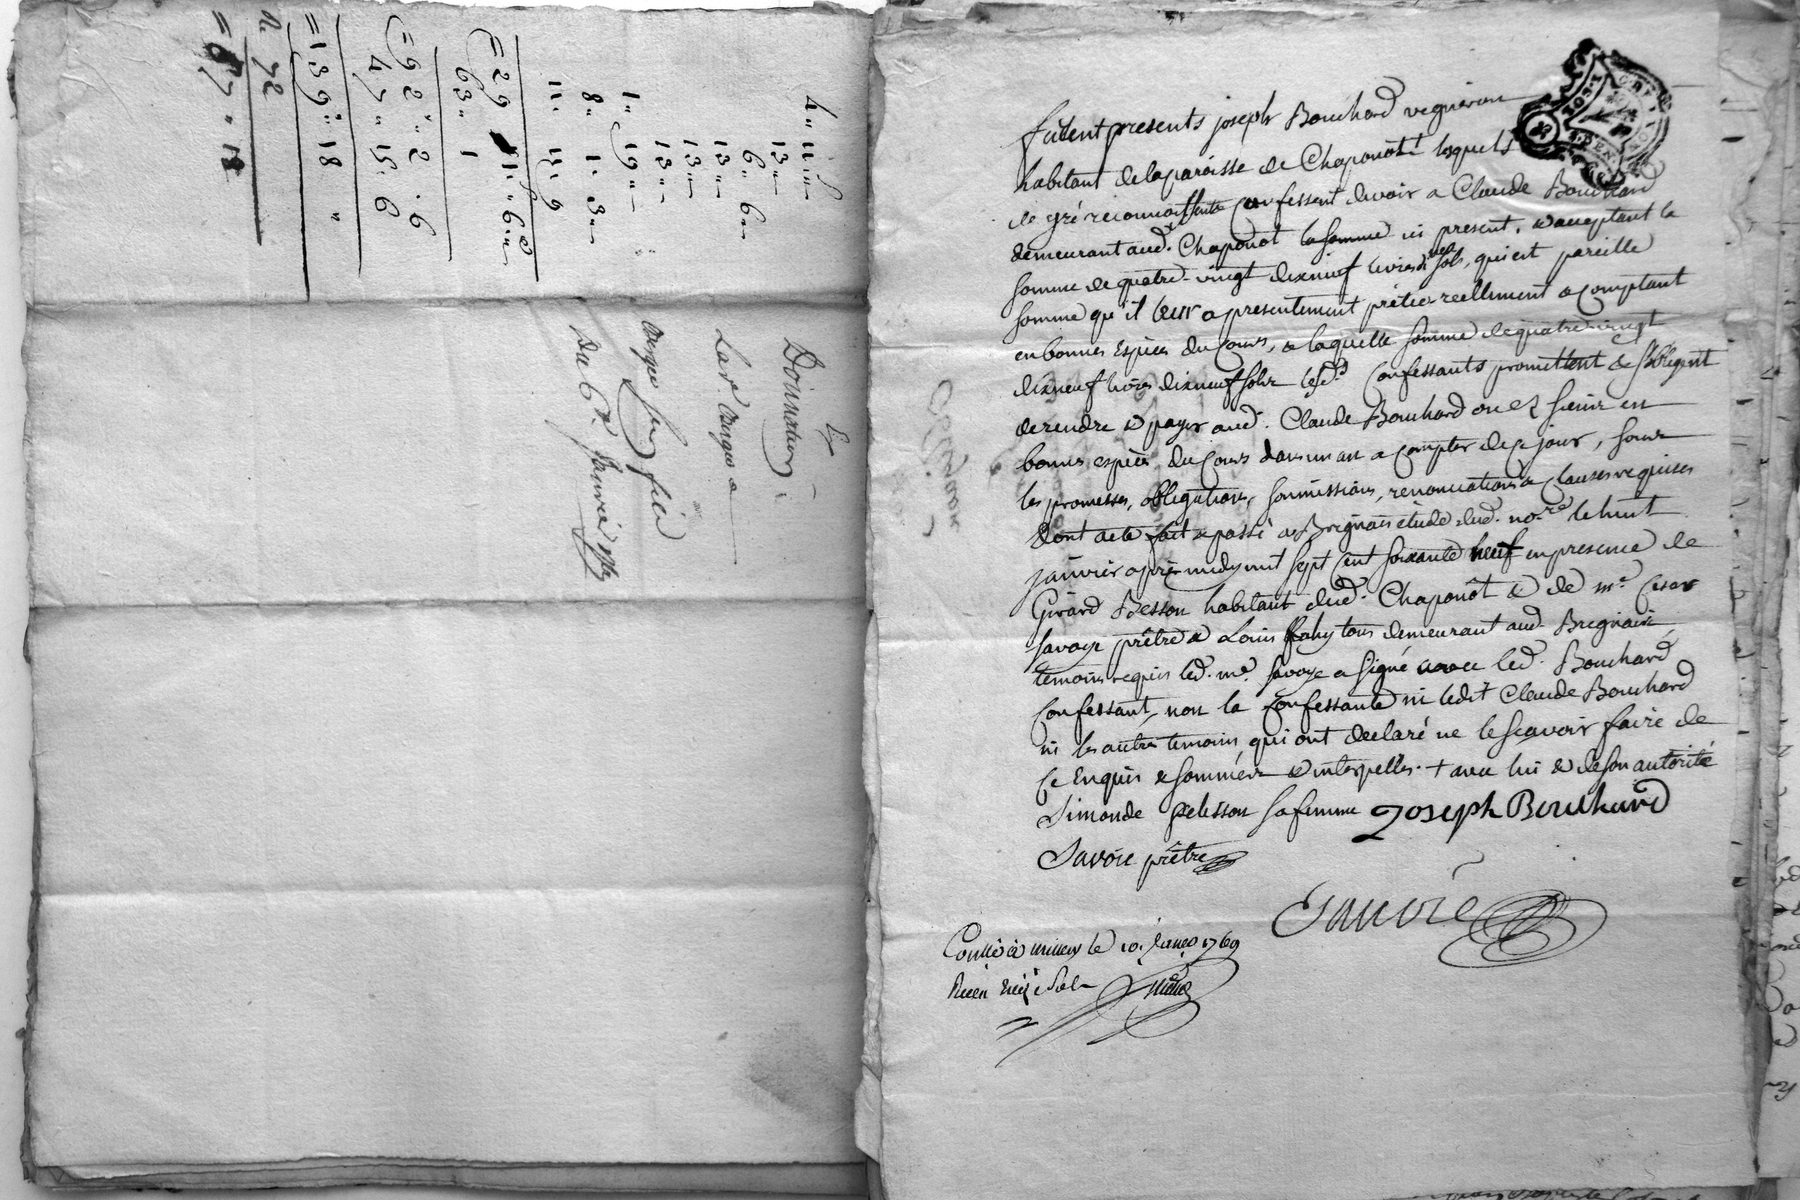 4 " 11 "
13 "
6 " 6 "
13 "
13 "
13 "
1 " 19 "
8 " 1 " 3 "
11 " 13 " 9
= 29 11 " 6
63 " 1
= 92 " 2 " 6
47 " 15 " 6
= 139 " 18 "
72
= 67 " 18
Donnation
Du 6 Janvier
furent presents joseph Bouchard vigneron
habitant de la paroisse de Chaponost lesquels
de gré reconnoissent & confessent devoir a Claude Bouchard
demeurant aud. Chaponôt la somme ici present, & acceptant la
somme de quatre-vingt dixneuf livres sols, qui est pareille
somme qu'il leur a presentement prêtée reellement & comptant
en bonnes espèces du Cours, & laquelle somme de quatre-vingt
dixneuf livres dixneuf sols lesd. Confessants promettent & s'obligent
de rendre & payer aud. Claude Bouchard ou es siens en
bonnes espèces du Cours dans un an a compter de ce jour, sous
les promesses, obligations, soumissions, renonciations & clauses requises
Dont acte fait & passé a Brignais étude dud. no.re le huit
janvier après midy mil sept cent soixante neuf en presence de
Girard Besson habitant dud. Chaponôt & de m.e Cesar
Savoye prêtre & Louis Fahy tous demeurant aud. Brignais
temoins requis led. m.e Savoye a signé avec led. Bouchard
Confessant, non la Confessante ni ledit Claude Bouchard
ni les autres temoins qui ont declaré ne le scavoir faire de
ce Enquis & sommés & interpellés. + avec lui & de son autorité
Simonde pelisson sa femme Joseph Bouchard
Savoie prêtre
Conllé à le 10. Janvr 1769
Receu treize Sols